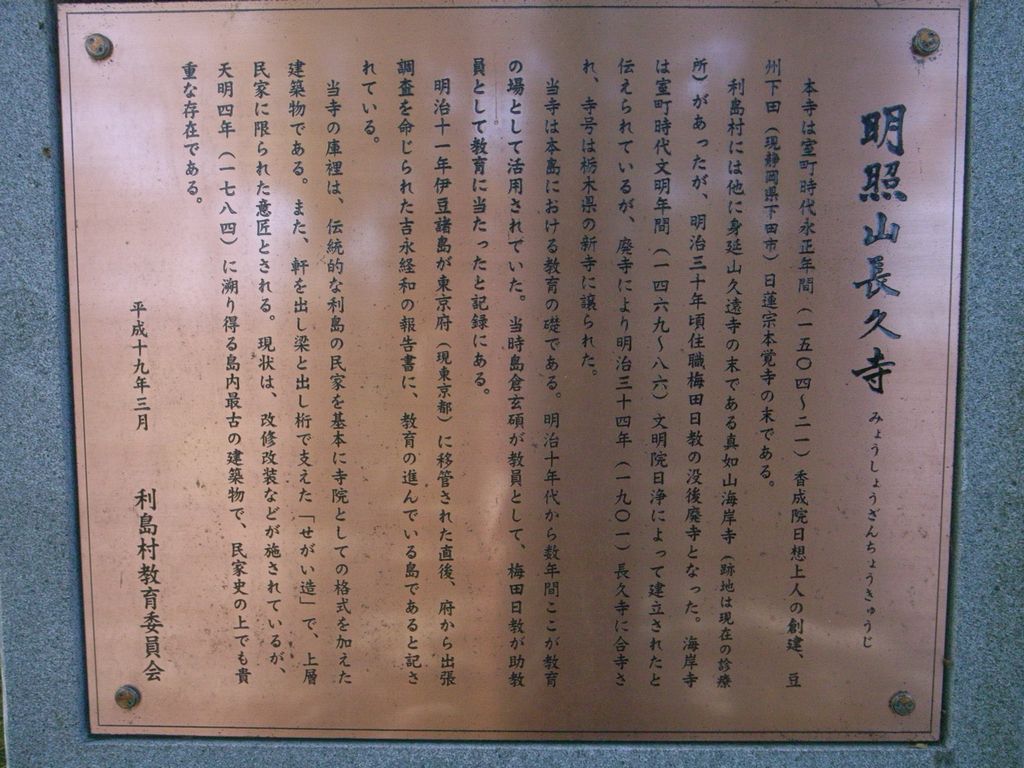 明照山長久寺 みょうしょうざんちょうきゅうじ
本寺は室町時代永正年間（一五〇四～二一）香成院日想上人の創建、豆
州下田（現静岡県下田市）日蓮宗本覚寺の末である。
利島村には他に身延山久遠寺の末である真如山海岸寺（跡地は現在の診療
所）があったが、明治三十年頃住職梅田日教の没後廃寺となった。海岸寺
は室町時代文明年間（一四六九～八六）文明院日浄によって建立されたと
伝えられているが、廃寺により明治三十四年（一九〇一）長久寺に合寺さ
れ、寺号は栃木県の新寺に譲られた。
当寺は本島における教育の礎である。明治十年代から数年間ここが教育
の場として活用されでいた。当時島倉玄碩が教員として、梅田日教が助教
員として教育に当たったと記録にある。
明治十一年伊豆諸島が東京府（現東京都）に移管された直後、府から出張
調査を命じられた吉永経和の報告書に、教育の進んでいる島であると記さ
れている。
当寺の庫裡は、伝統的な利島の民家を基本に寺院としての格式を加えた
建築物である。また、軒を出し梁と出し桁で支えた「せがい造」で、上層
民家に限られた意匠とされる。現状は、改修改装などが施されているが、
天明四年（一七八四）に溯り得る島内最古の建築物で、民家史の上でも貴
重な存在である。
平成十九年三月 利島村教育委員会